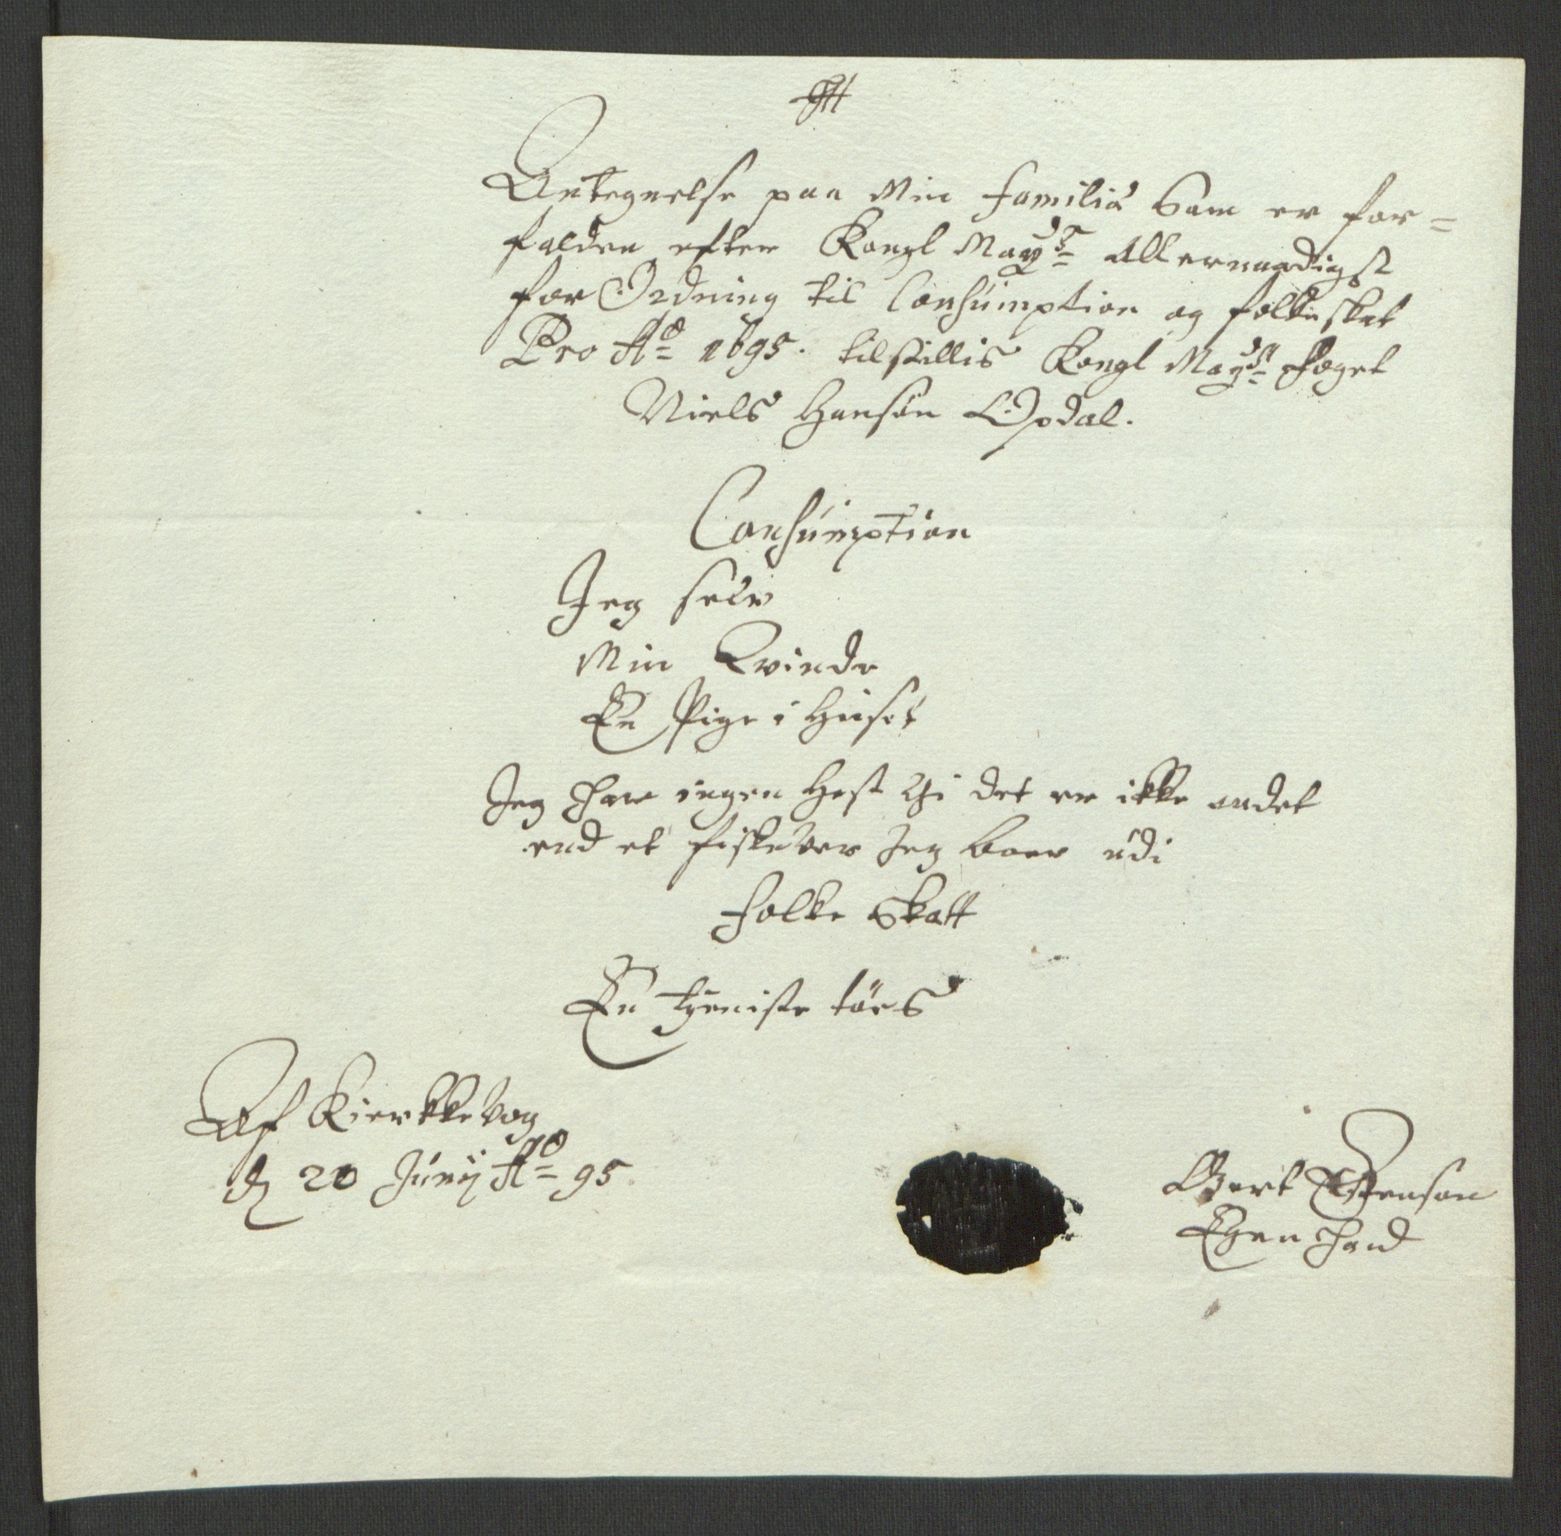 Antegnelse paa Min familia Som er for=
falden efter Kongl May:ts Allernaadigst
for Ordning til Consumption og folkeskat
Pro Ao 1695. tilstillis Kongl May:ts foget
Niels Hansøn Opdal.
Consumption
Jeg selv
Min Qvinde
En Pige i Huset
Jeg har ingen Hest thi det er ikke andet
end et fiskever Jeg boer udi
folke Skatt
En tjeniste tøes
Af KierkkeVog
d 20 Junij Ao 95
Gert
Egen Hand